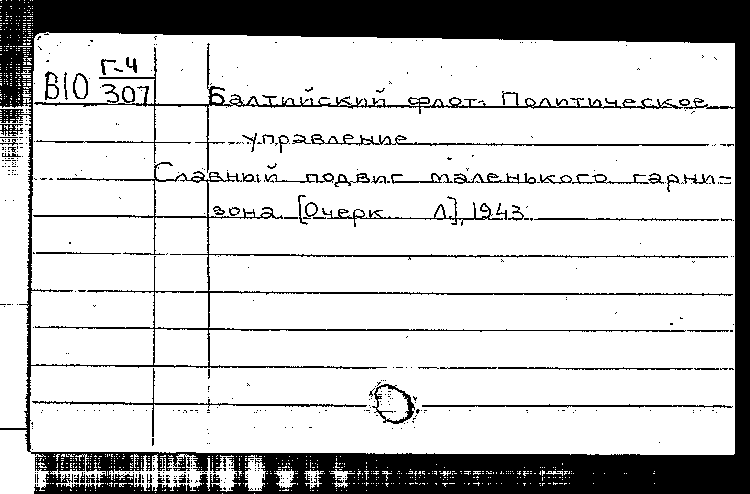 В10 Г-4/307
Балтийский флот. Политическое
управление
Славный подвиг маленького гарни-
зона. [Очерк Л], 1943